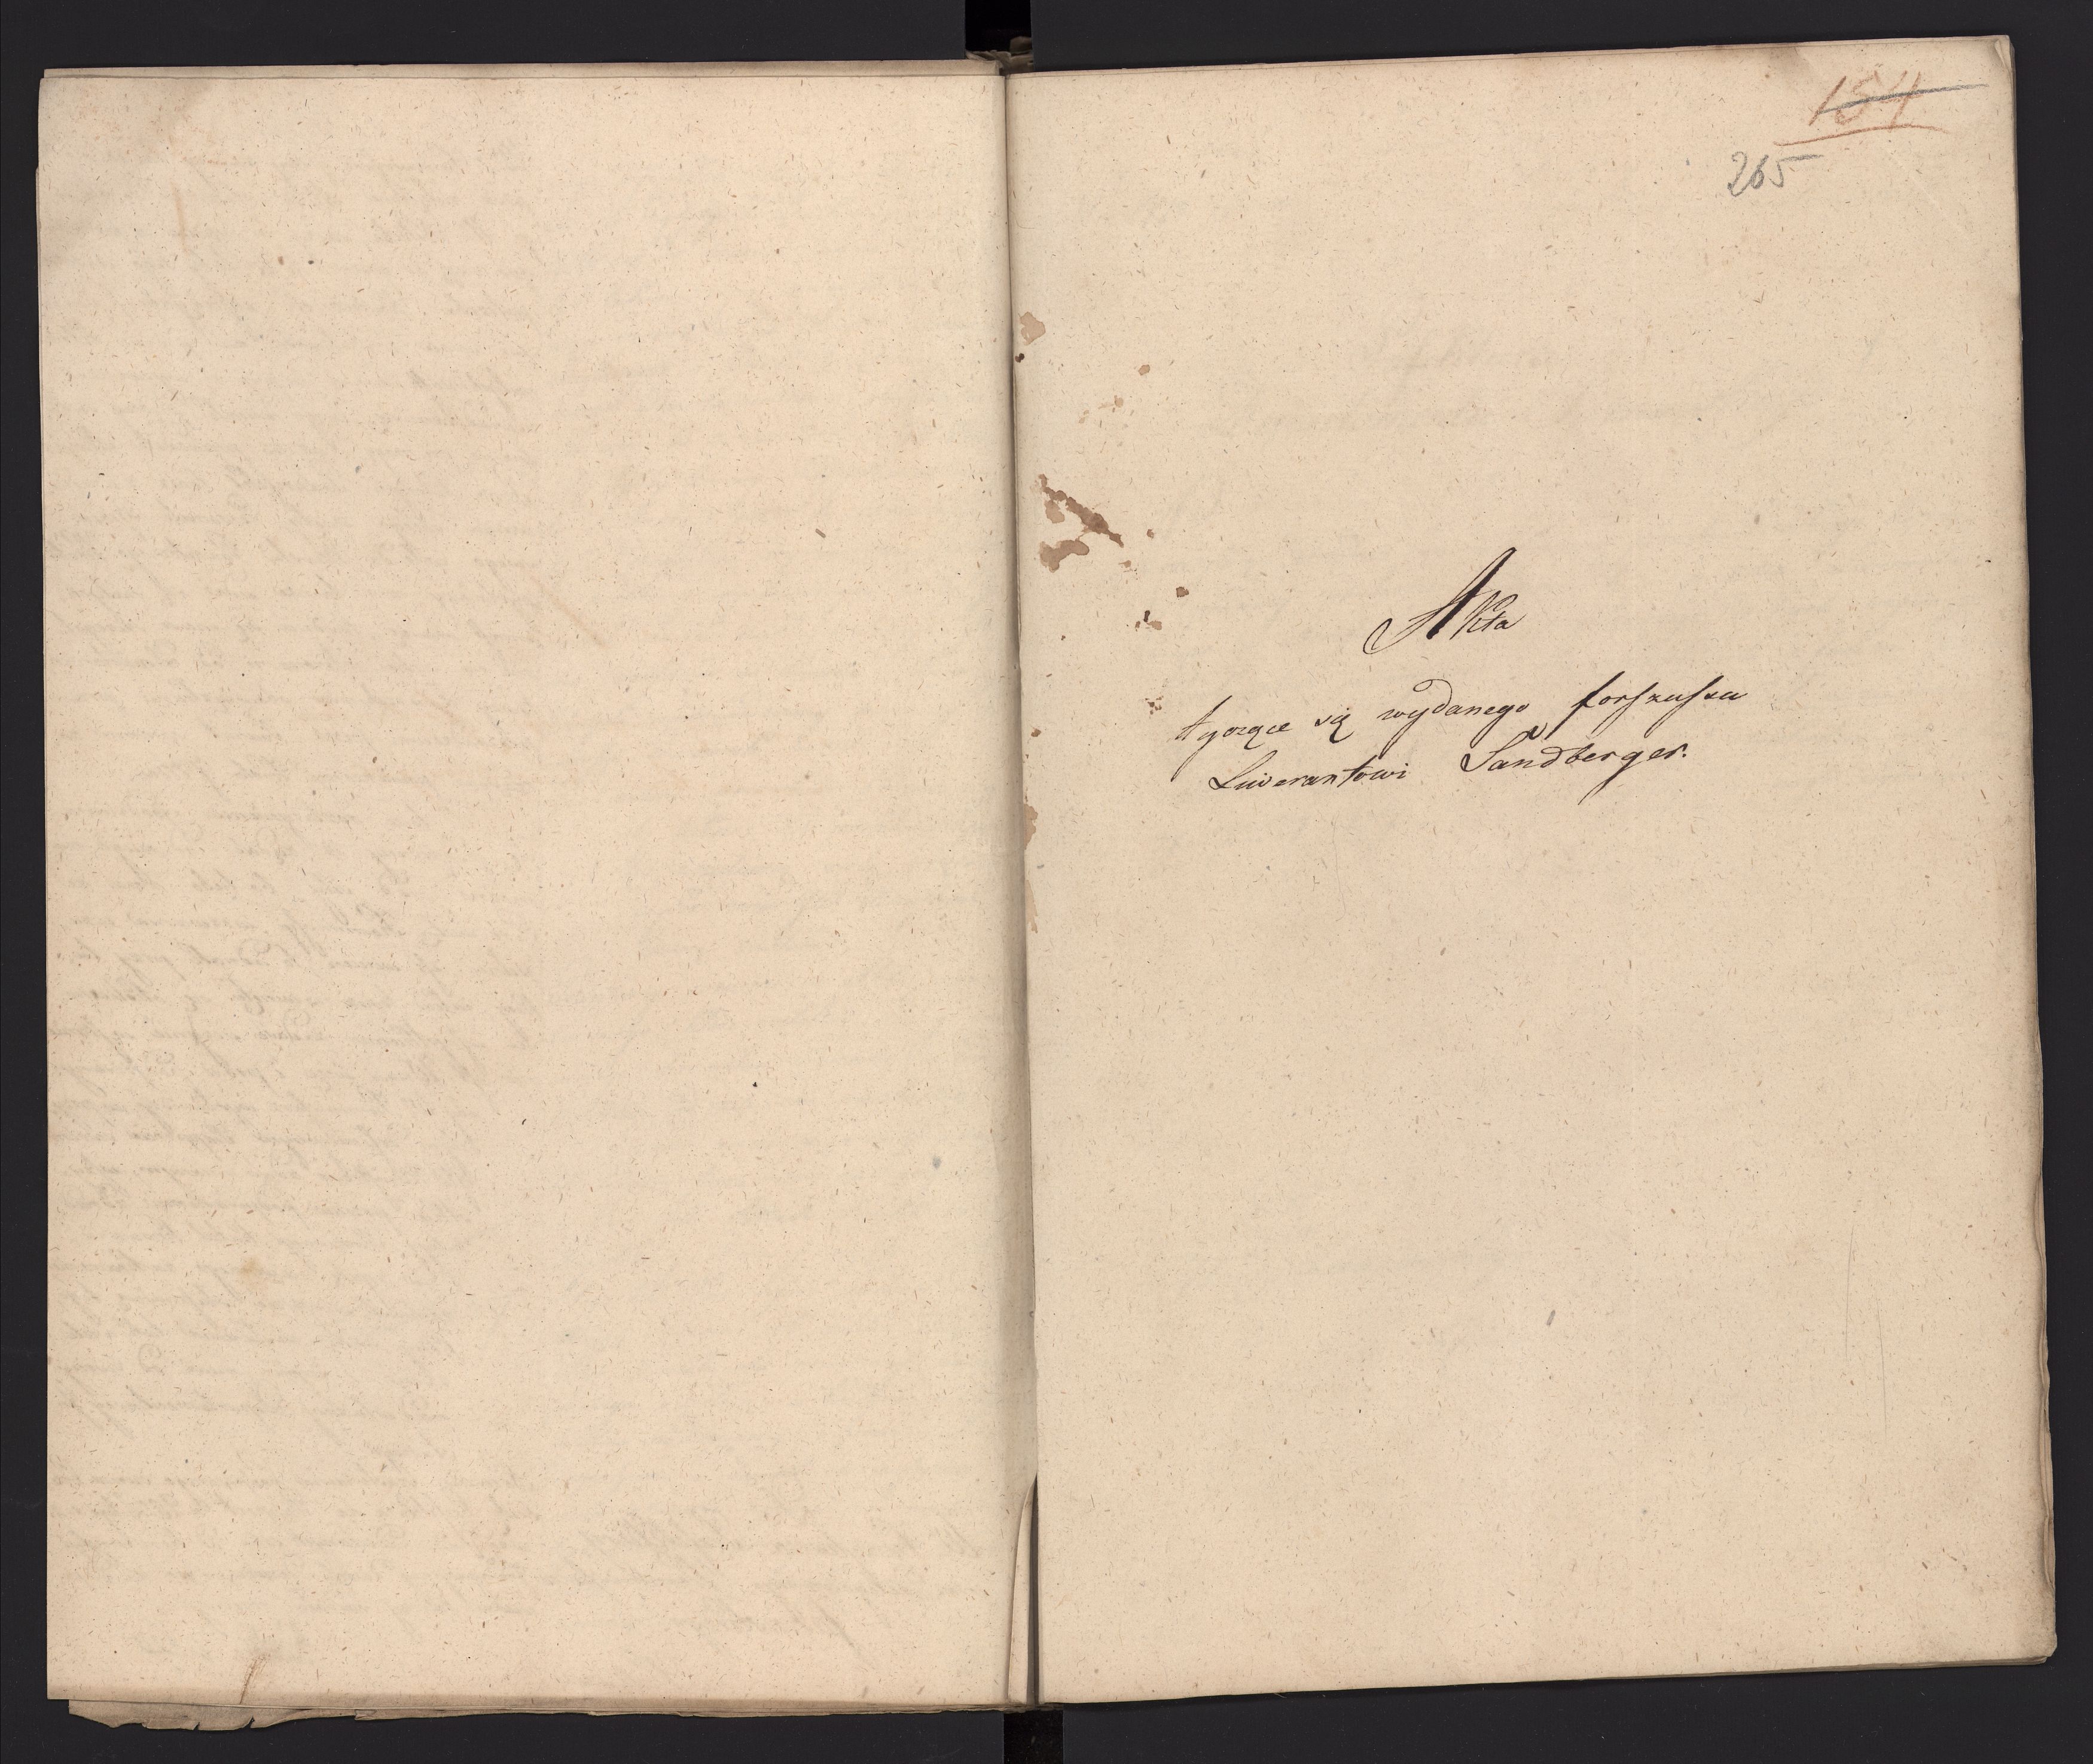 154
265
Akta
tyczące się wydanego forszuszu
Liwerantowi Sandberger.